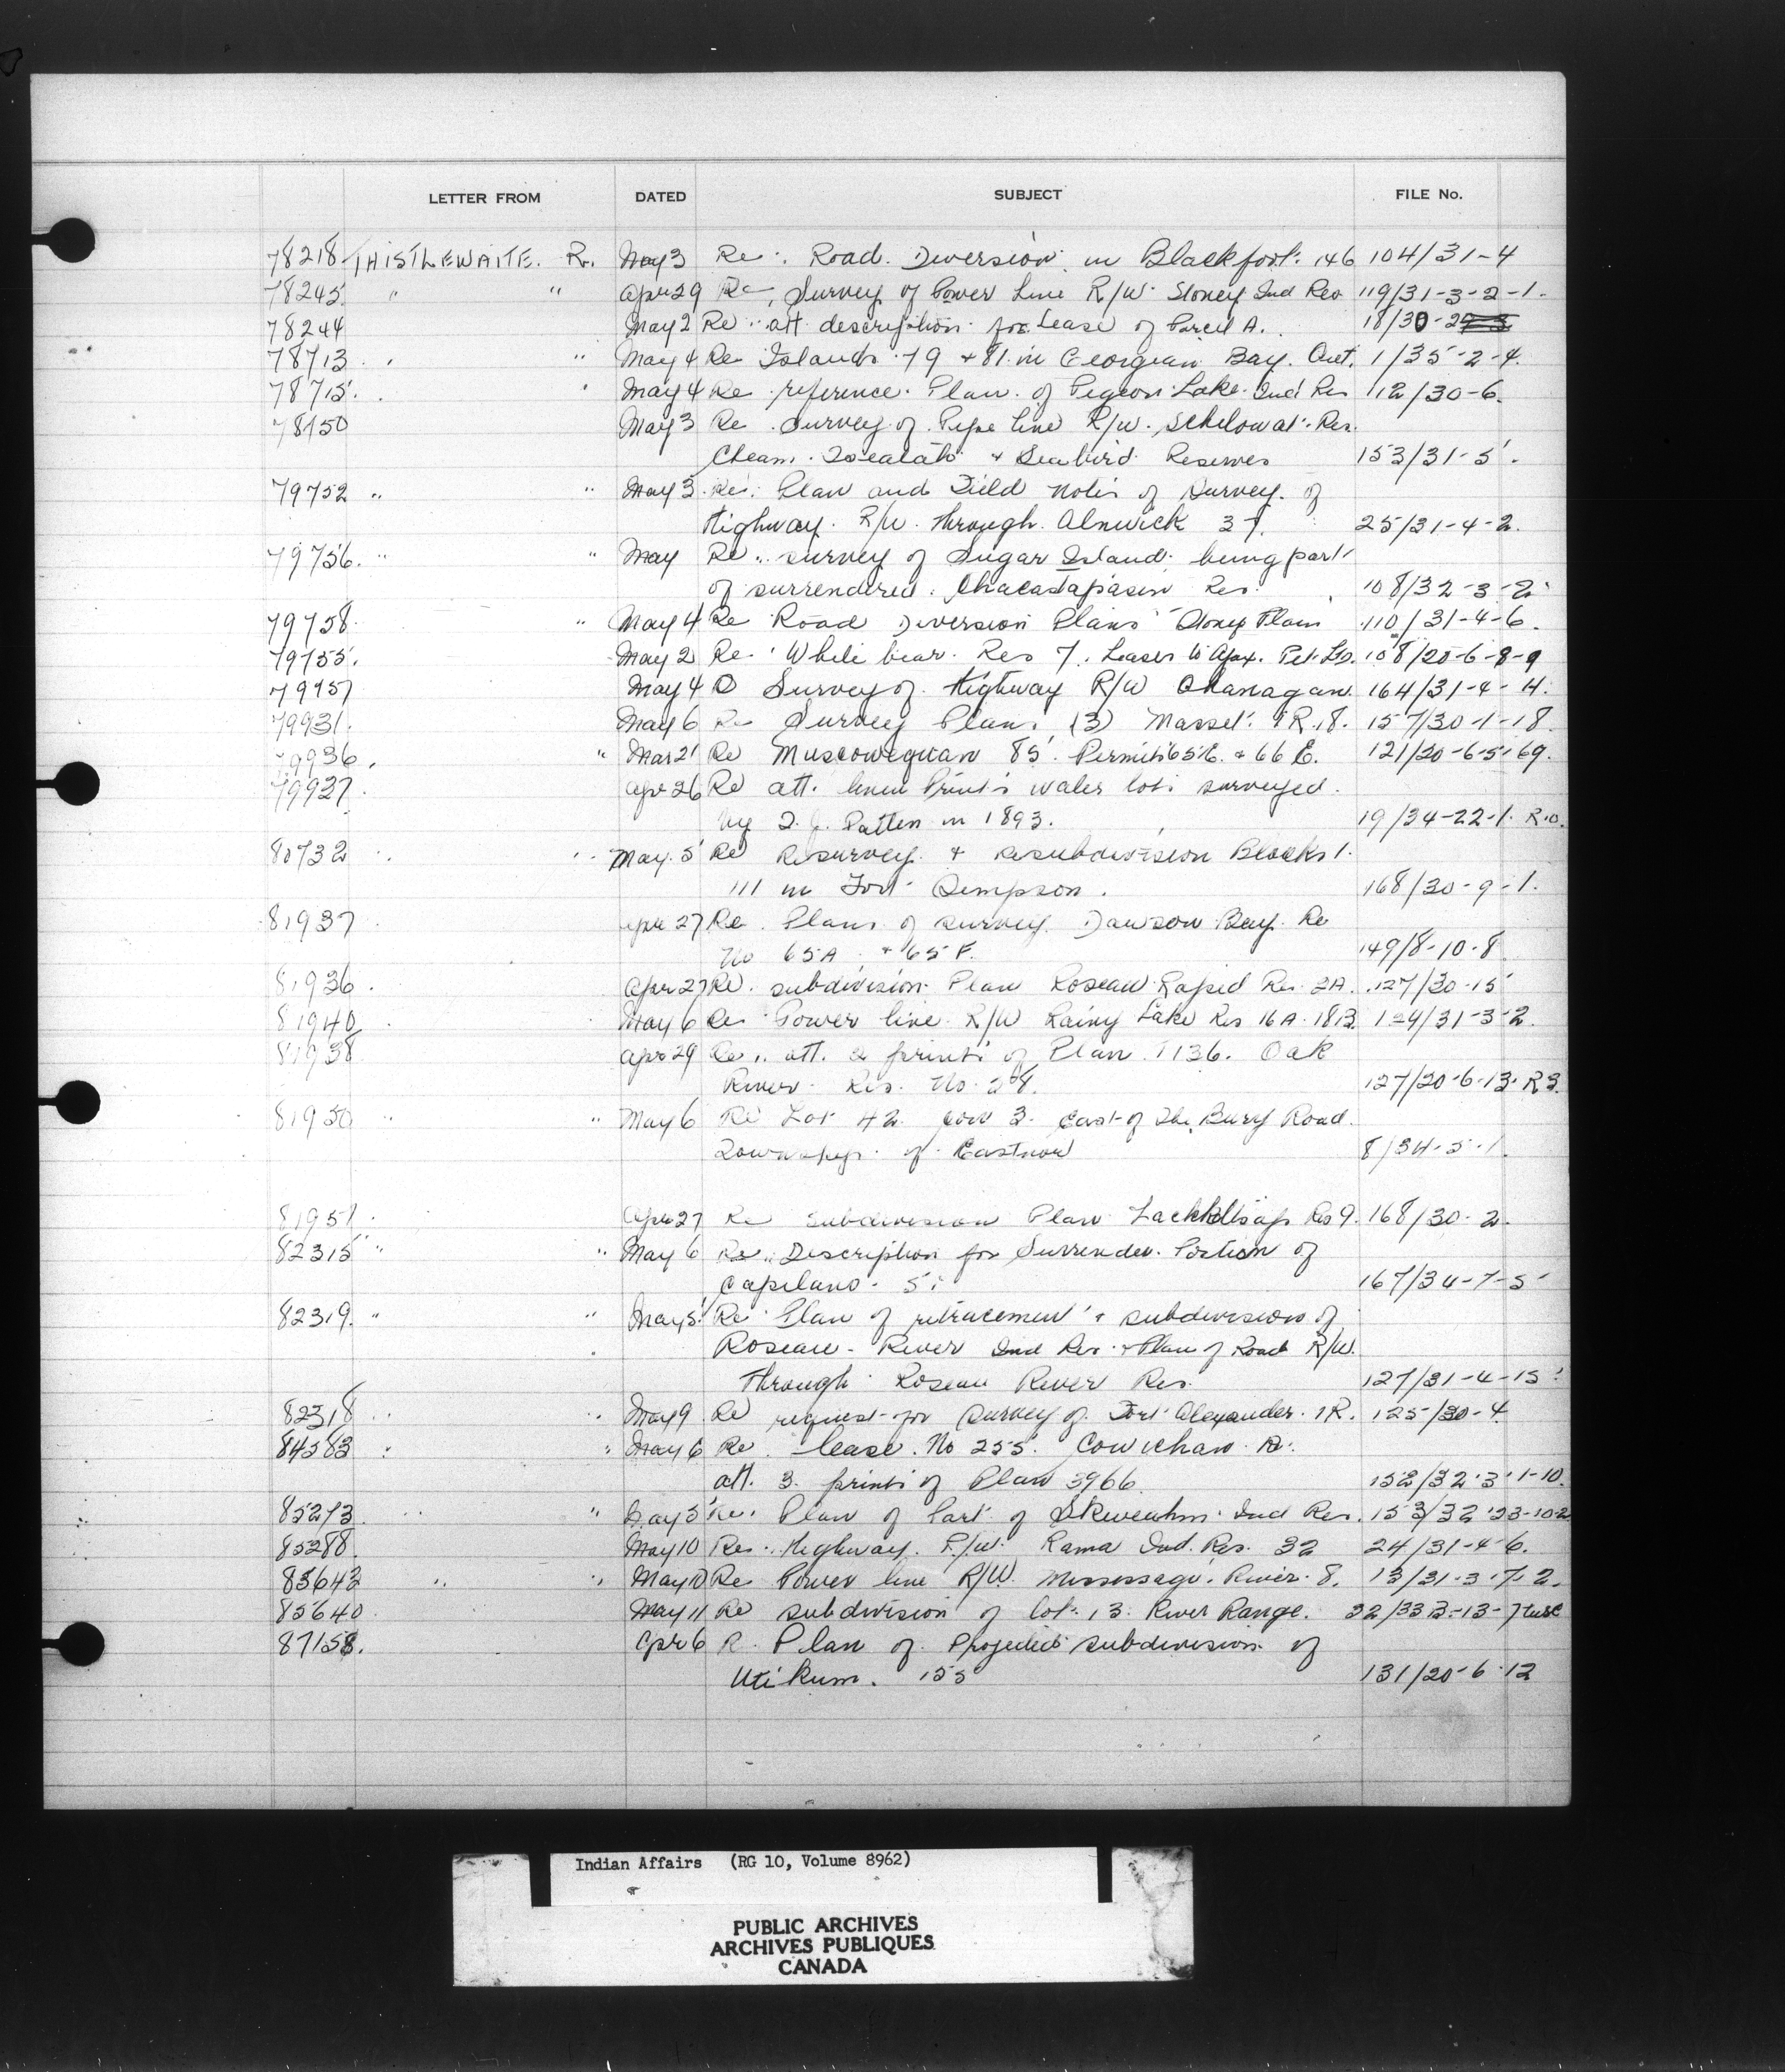 LETTER FROM DATED SUBJECT FILE No.
78218 THISTLEWAITE. R. May 3 Re. Road Diversion in Blackfoot 146 104/31-4
78245 " " Apr 29 Re, Survey of Power Line R/W Stoney Ind Res 119/31-3-2-1.
78244 May 2 Re att description for Lease of Parcel A. 18/30-
78713 " " May 4 Re Islands 79 + 81 in Georgian Bay. Ont. 1/35-2-4.
78715. May 4 Re reference Plan of Pigeon Lake Ind Res 112/30-6.
78150 May 3 Re Survey of Pipe line R/W. Schelowat Res.
Cheam. + Seabird Reserves 153/31-5.
79752 " " May 3 Re: Plan and Field notes of Survey of
Highway R/W. through Alnwick 37. 25/31-4-2.
79756. " " May Re. survey of Sugar Island being part
of surrendered Chacastapasin Res. 108/32-3-2
79758 " May 4 Re Road Diversion Plans Stoney Plain 110/31-4-6.
79755. May 2 Re White bear Res 7. Leases to Ajax. Pet. Ltd. 108/20-6-8-9
79957 May 4 Survey of Highway R/W Okanagan 164/31-4-H.
79931. May 6 Re Survey Plans (3) Masset. IR. 18. 157/30-1-18
79936. " Mar 21 Re Muscowequan 85. Permits 65E. + 66 E. 121/20-6-5-69.
79937. Apr 26 Re att. linen Prints water lots surveyed
by T. J. Patten in 1893. 19/34-22-1. R.O.
80732 May 5 Re Resurvey + resubdivision Blocks 1.
111 in Fort Simpson. 168/30-9-1.
81937 Apr 27 Re. Plans of survey Dawson Bay Re
No 65A + 65F. 149/8-10-8
81936. Apr 27 Re. subdivision Plan Roseau Rapid Res 2A. 127/30-15
81940 May 6 Re Power line R/W Rainy Lake Res 16A. 18B 124/31-3-2.
81938 Apr 29 Re. att. 2 prints of Plan 1136. Oak
River Res. No. 58. 127/20-6-13. R3.
81950 " May 6 Re Lot 42 con 3. East of the Bury Road.
Township of Eastnor 8/34-5-1.
81951. Apr 27 Re subdivision Plan Lachkaltsap Res 9. 168/30-2.
82315 " " May 6 Re Description for Surrender Portion of
Capilano. 5. 167/34-7-5
82319. " " May 5 Re Plan of retracement + subdivision of
Roseau River Ind Res. + Plan of Road R/W.
through Roseau River Res. 127/31-4-15
82318 " May 9 Re request for Survey of Fort Alexander. IR. 125/30-4
84583 " May 6 Re. lease. No 255. Cowichan
att. 3 prints of Plan 3966. 152/32-3-1-10
85273 " May 5 Re. Plan of Part of Skweahm Ind Res. 153/32-23-10-2
85288. May 10 Re. Highway. R/W. Rama Ind. Res. 32 24/31-4-6.
85642 " " May 10 Re Power line R/W. Mississagi River 8. 13/31-3-7-2.
85640 May 11 Re subdivision of lot 13 River Range. 32/33B-13-7 tusc
87158. Apr 6 R. Plan of Projected subdivision of
Utikum. 155 131/20-6-12
Indian Affairs (RG 10, Volume 8962)
PUBLIC ARCHIVES
ARCHIVES PUBLIQUES
CANADA